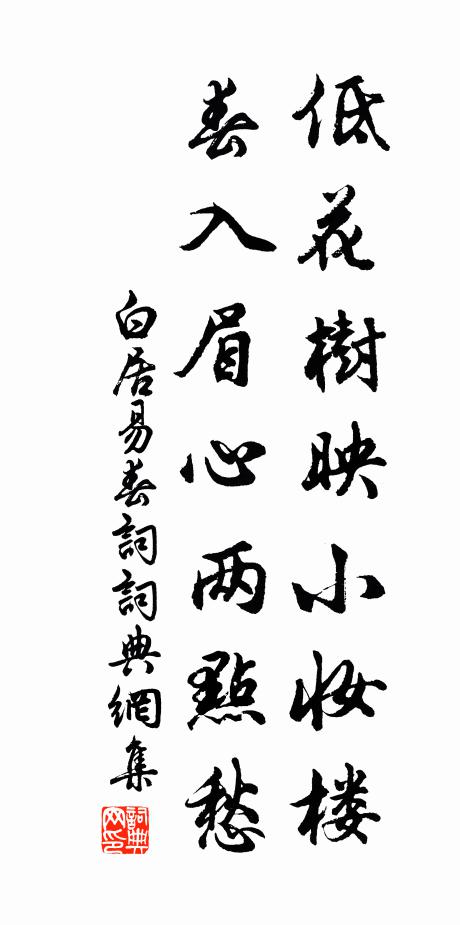 低花樹映小妆楼
春入眉心两點愁
白居易春詞詞典網集
詞典网印